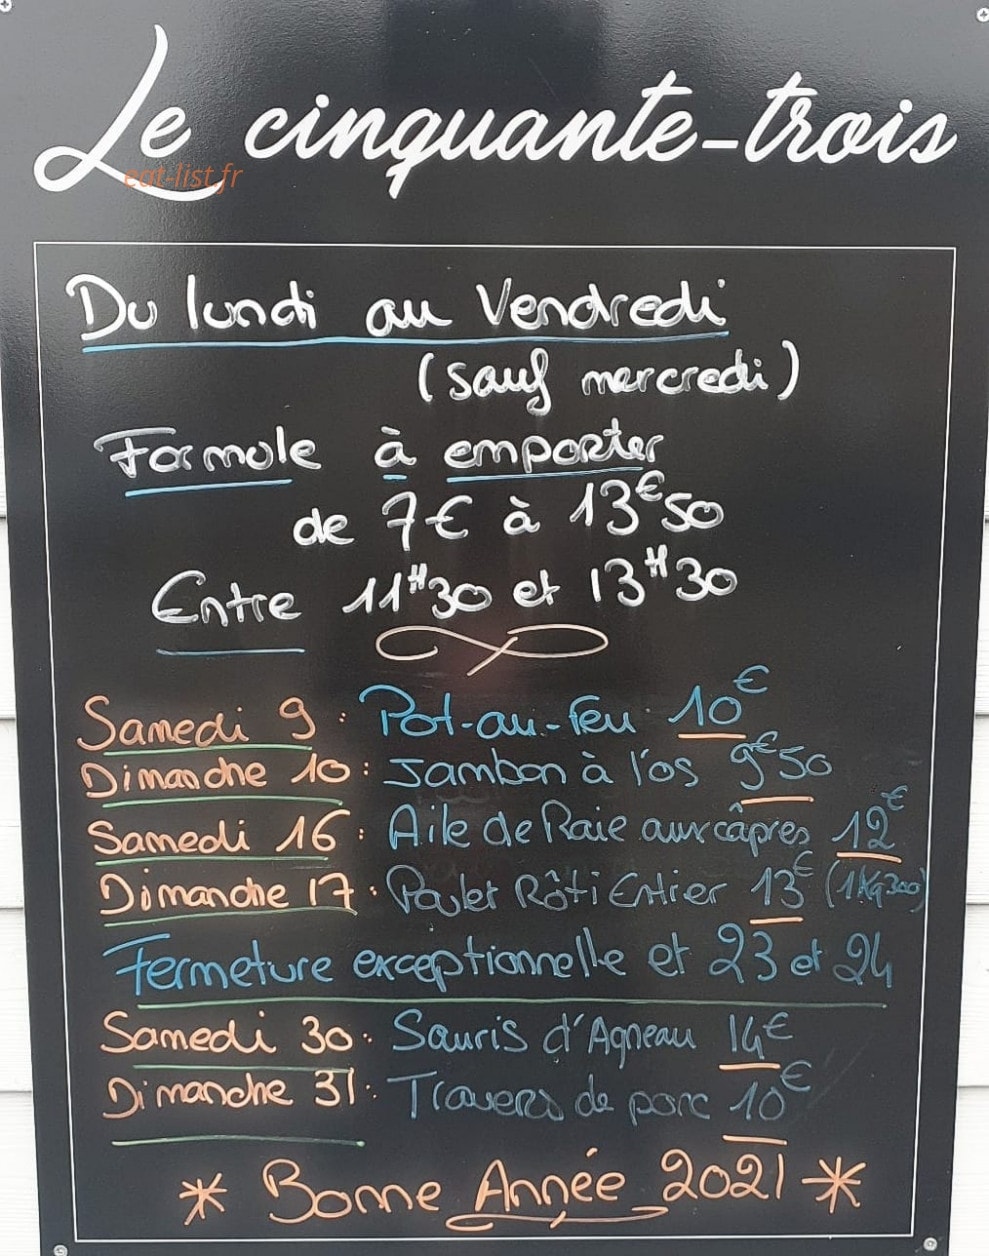 Le cinquante-trois
eat-list.fr
Du lundi au Vendredi
(sauf mercredi)
Formule à emporter
de 7€ à 13€50
Entre 11H30 et 13H30
Samedi 9 : Pot-au-feu 10€
Dimanche 10 : Jambon à l'os 9€50
Samedi 16 : Aile de Raie aux câpres 12€
Dimanche 17 : Poulet Rôti Entier 13€ (1Kg300)
Fermeture exceptionnelle et 23 et 24
Samedi 30 : Souris d'Agneau 14€
Dimanche 31 : Travers de porc 10€
* Bonne Année 2021 *